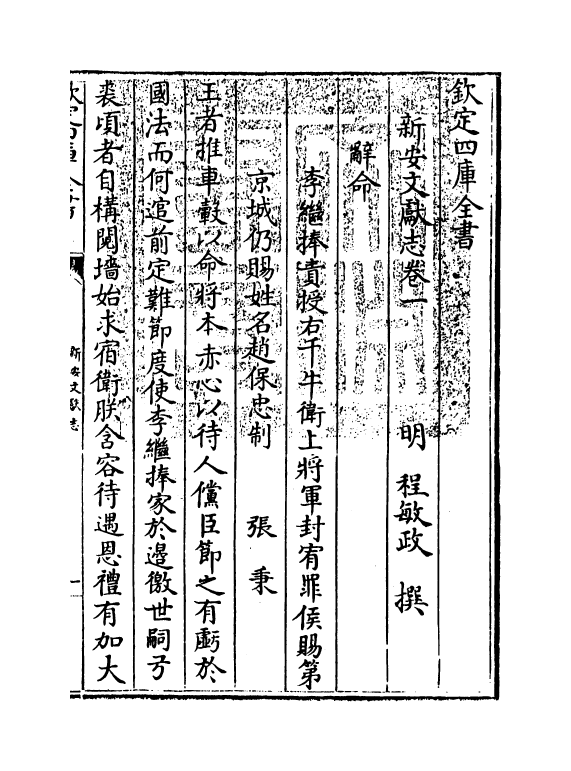 欽定四庫全書
新安文獻志卷一
明 程敏政 撰
辭命
李繼捧責授右千牛衛上將軍封宥罪侯賜第
京城仍賜姓名趙保忠制 張秉
王者推車轂以命將本赤心以待人儻臣節之有虧於
國法而何逭前定難節度使李繼捧家於邊徼世嗣弓
裘頃者自構鬩墻始求宿衛朕含容待遇恩禮有加大
新安文獻志
一